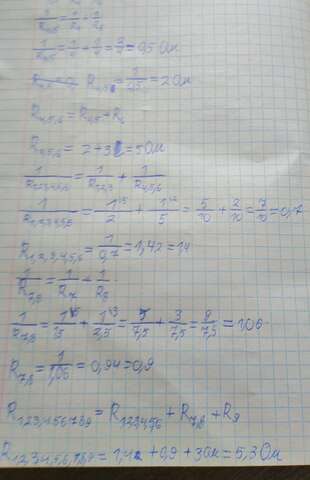 1/R₄,₅ = 1/R₄ + 1/R₅
= 0,5 Ом
= 2 Ом
R₄,₅,₆ = R₄,₅ + R₆
R₄,₅,₆ = 2+3 = 5 Ом
1/R₁,₂,₃,₄,₅,₆ = 1/R₁,₂,₃ + 1/R₄,₅,₆
1/R₁,₂,₃,₄,₅,₆ = 1/2 + 1/5 = 5/10 + 2/10 = 7/10 = 0,7
R₁,₂,₃,₄,₅,₆ = 1/0,7 = 1,42 = 1,4
1/R₇,₈ = 1/R₇ + 1/R₈
1/R₇,₈ = + 1/2,5 = 5/7,5 + 3/7,5 = 8/7,5 = 1,06
R₇,₈ = 1/1,06 = 0,94 = 0,9
R₁,₂,₃,₄,₅,₆,₇,₈,₉ = R₁,₂,₃,₄,₅,₆ + R₇,₈ + R₉
R₁,₂,₃,₄,₅,₆,₇,₈,₉ = 1,4 + 0,9 + 3 Ом = 5,3 Ом